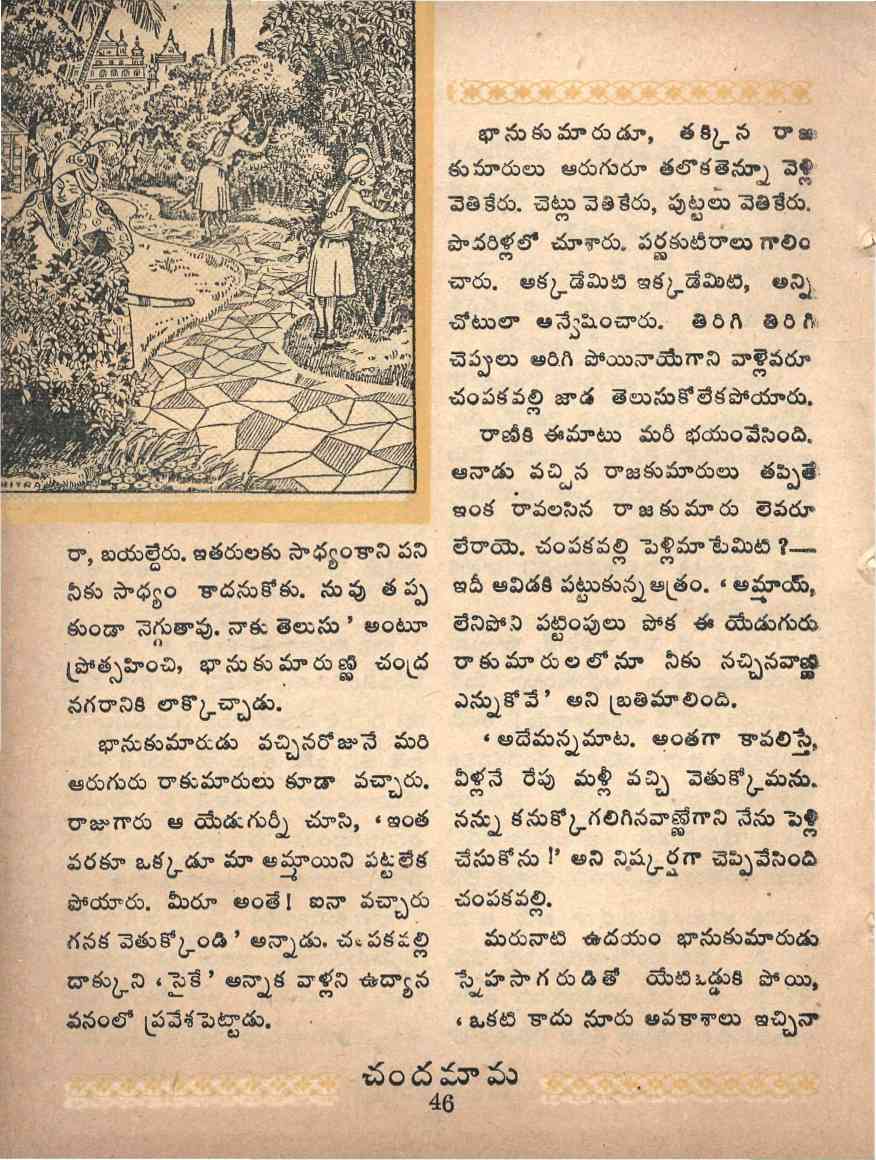 రా, బయల్దేరు. ఇతరులకు సాధ్యంకాని పని
నీకు సాధ్యం కాదనుకోకు. నువు తప్ప
కుండా నెగ్గుతావు. నాకు తెలుసు' అంటూ
ప్రోత్సహించి, భానుకుమారుణ్ణి చంద్ర
నగరానికి లాక్కొచ్చాడు.
భానుకుమారుడు వచ్చినరోజునే మరి
ఆరుగురు రాకుమారులు కూడా వచ్చారు.
రాజుగారు ఆ యేడుగుర్నీ చూసి, ‘ఇంత
వరకూ ఒక్కడూ మా అమ్మాయిని పట్టలేక
పోయారు. మీరూ అంతే! ఐనా వచ్చారు
గనక వెతుక్కోండి’ అన్నాడు. చంపకవల్లి
దాక్కుని ‘సైకే’ అన్నాక వాళ్లని ఉద్యాన
వనంలో ప్రవేశపెట్టాడు.
భానుకుమారుడూ, తక్కిన రాజ
కుమారులు ఆరుగురూ తలొకతెన్నూ వెళ్లి
వెతికేరు. చెట్లు వెతికేరు, పుట్టలు వెతికేరు.
పొదరిళ్లలో చూశారు. పర్ణకుటీరాలు గాలిం
చారు. అక్కడేమిటి ఇక్కడేమిటి, అన్ని
చోటులా అన్వేషించారు. తిరిగి తిరిగి
చెప్పులు అరిగి పోయినాయేగాని వాళ్లెవరూ
చంపకవల్లి జాడ తెలుసుకోలేకపోయారు.
రాణీకి ఈమాటు మరీ భయంవేసింది.
ఆనాడు వచ్చిన రాజకుమారులు తప్పితే
ఇంక రావలసిన రాజకుమారు లెవరూ
లేరాయె. చంపకవల్లి పెళ్లిమాటేమిటి?—
ఇదీ ఆవిడకి పట్టుకున్న ఆత్రం. ‘అమ్మాయ్,
లేనిపోని పట్టింపులు పోక ఈ యేడుగురు
రాకుమారులలోనూ నీకు నచ్చినవాణ్ణి
ఎన్నుకోవే’ అని బ్రతిమాలింది.
‘అదేమన్నమాట. అంతగా కావలిస్తే,
వీళ్లనే రేపు మళ్లీ వచ్చి వెతుక్కోమను.
నన్ను కనుక్కోగలిగినవాణ్ణేగాని నేను పెళ్లి
చేసుకోను!’ అని నిష్కర్షగా చెప్పివేసింది
చంపకవల్లి.
మరునాటి ఉదయం భానుకుమారుడు
స్నేహసాగరుడితో యేటిఒడ్డుకి పోయి,
‘ఒకటి కాదు నూరు అవకాశాలు ఇచ్చినా
చందమామ
46